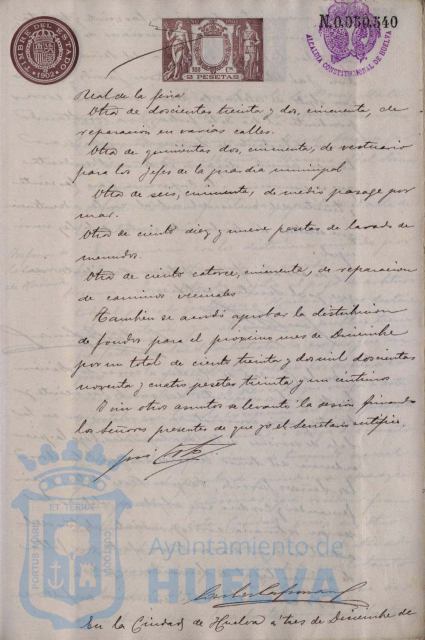 TIMBRE DEL ESTADO
1902
2 PESETAS
N.0.050.540
ALCALDIA CONSTITUCIONAL DE HUELVA
Real de la feria
Otra de doscientas treinta y dos, cincuenta, de
reparacion en varias calles.
Otra de quinientas dos, cincuenta, de vestuario
para los Jefes de la guardia municipal
Otra de seis, cincuenta, de medio pasage por
mar.
Otra de ciento diez y nueve pesetas de lavado de
menudos.
Otra de ciento catorce, cincuenta, de reparacion
de caminos vecinales
Tambien se acordó aprobar la distribucion
de fondos para el próximo mes de Diciembre
por un total de ciento treinta y dos mil doscientas
noventa y cuatro pesetas treinta y un céntimos
Y sin otros asuntos se levantó la sesion firmando
los Señores presentes de que yo el Secretario certifico.
PORTUS MARIS ET TERRÆ CUSTODIA
Ayuntamiento de
HUELVA
En la Ciudad de Huelva á tres de Diciembre de